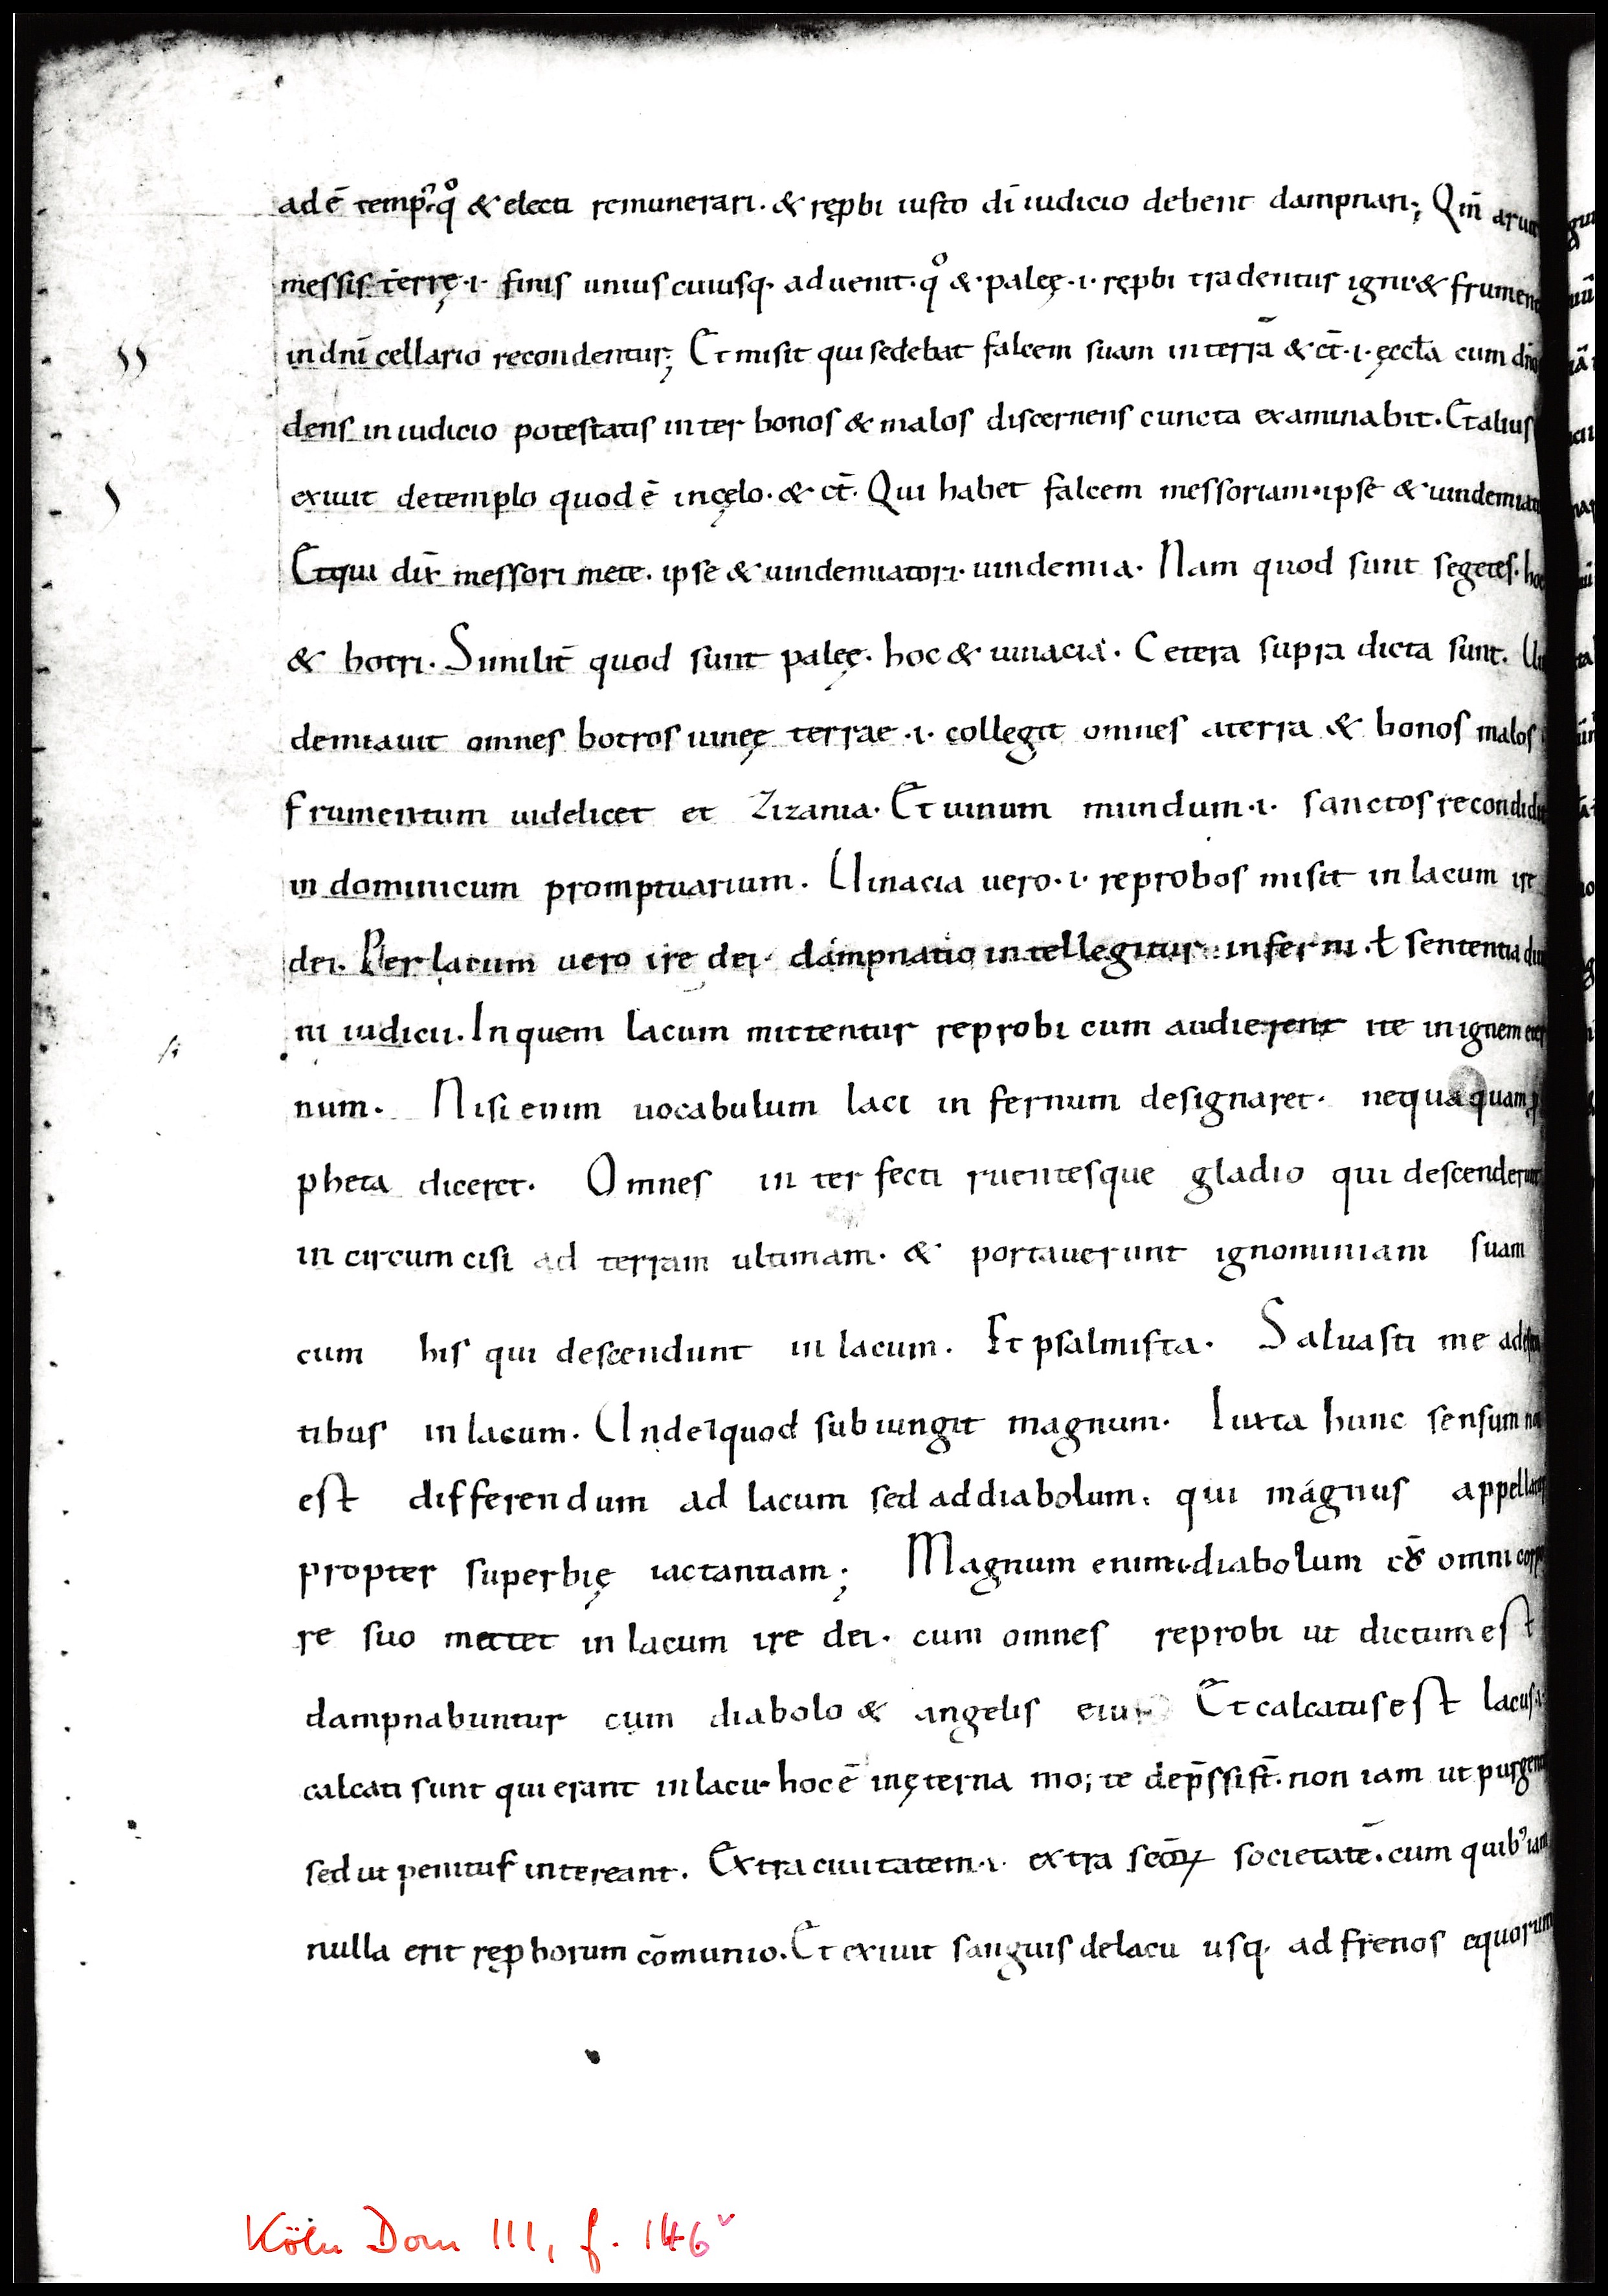 adē temp᷒.qͦ & electi remunerari. & rep̱bi iusto dī iudicio debent dampnari; Qm̄ aruit
messis terrę .i. finis unius cuiusq. aduenit. qͦ & paleę .i. rep̱bi tradentur igni & frumen
in dnī cellario recondentur; Et misit qui sedebat falcem suam in terrā & ct̄ .i. ęccła cum
dens in iudicio potestatis inter bonos & malos discernens cuncta examinabit. Et alius
exiuit de templo quod ē in cęlo. & ct̄. Qui habet falcem messoriam. ipse & uindemiat
Et qui dix̄ messori mete. ipse & uindemiatori. uindemia. Nam quod sunt segetes. hoc
& botri. Similit̄ quod sunt paleę. hoc & uinacia. Cetera supra dicta sunt. Uin
demiauit omnes botros uineę terrae .i. collegit omnes a terra & bonos malos
frumentum uidelicet et zizania. Et uinum mundum .i. sanctos recondidit
in dominicum promptuarium. Uinacia uero .i. reprobos misit in lacum ire
dei. Per lacum uero ire dei. dampnatio intellegitur inferni. ł sententia diui
ni iudicii. In quem lacum mittentur reprobi cum audierent ite in ignem eter
num. Nisi enim uocabulum laci infernum designaret. nequaquam p̱
pheta diceret. Omnes interfecti ruentesque gladio qui descenderunt
incircumcisi ad terram ultimam. & portauerunt ignominiam suam
cum his qui descendunt in lacum. Et psalmista. Saluasti me a
tibus in lacum. Unde quod subiungit magnum. Iuxta hunc sensum non
est differendum ad lacum sed ad diabolum. qui magnus appellatur
propter superbię iactantiam; Magnum enim diabolum omni corpo
re suo mittet in lacum ire dei. cum omnes reprobi ut dictum est
dampnabuntur cum diabolo & angelis eius Et calcatus est lacus .i.
calcati sunt qui erant in lacu. hoc ē in ęterna morte dep̄ssi st̄. non iam ut purgent
sed ut penitus intereant. Extra ciuitatem .i. extra sc̄oꝝ societatē. cum quib᷒ iam
nulla erit rep̱borum cōmunio. Et exiuit sanguis de lacu usq. ad frenos equorum
Köln Dom III, f. 146v